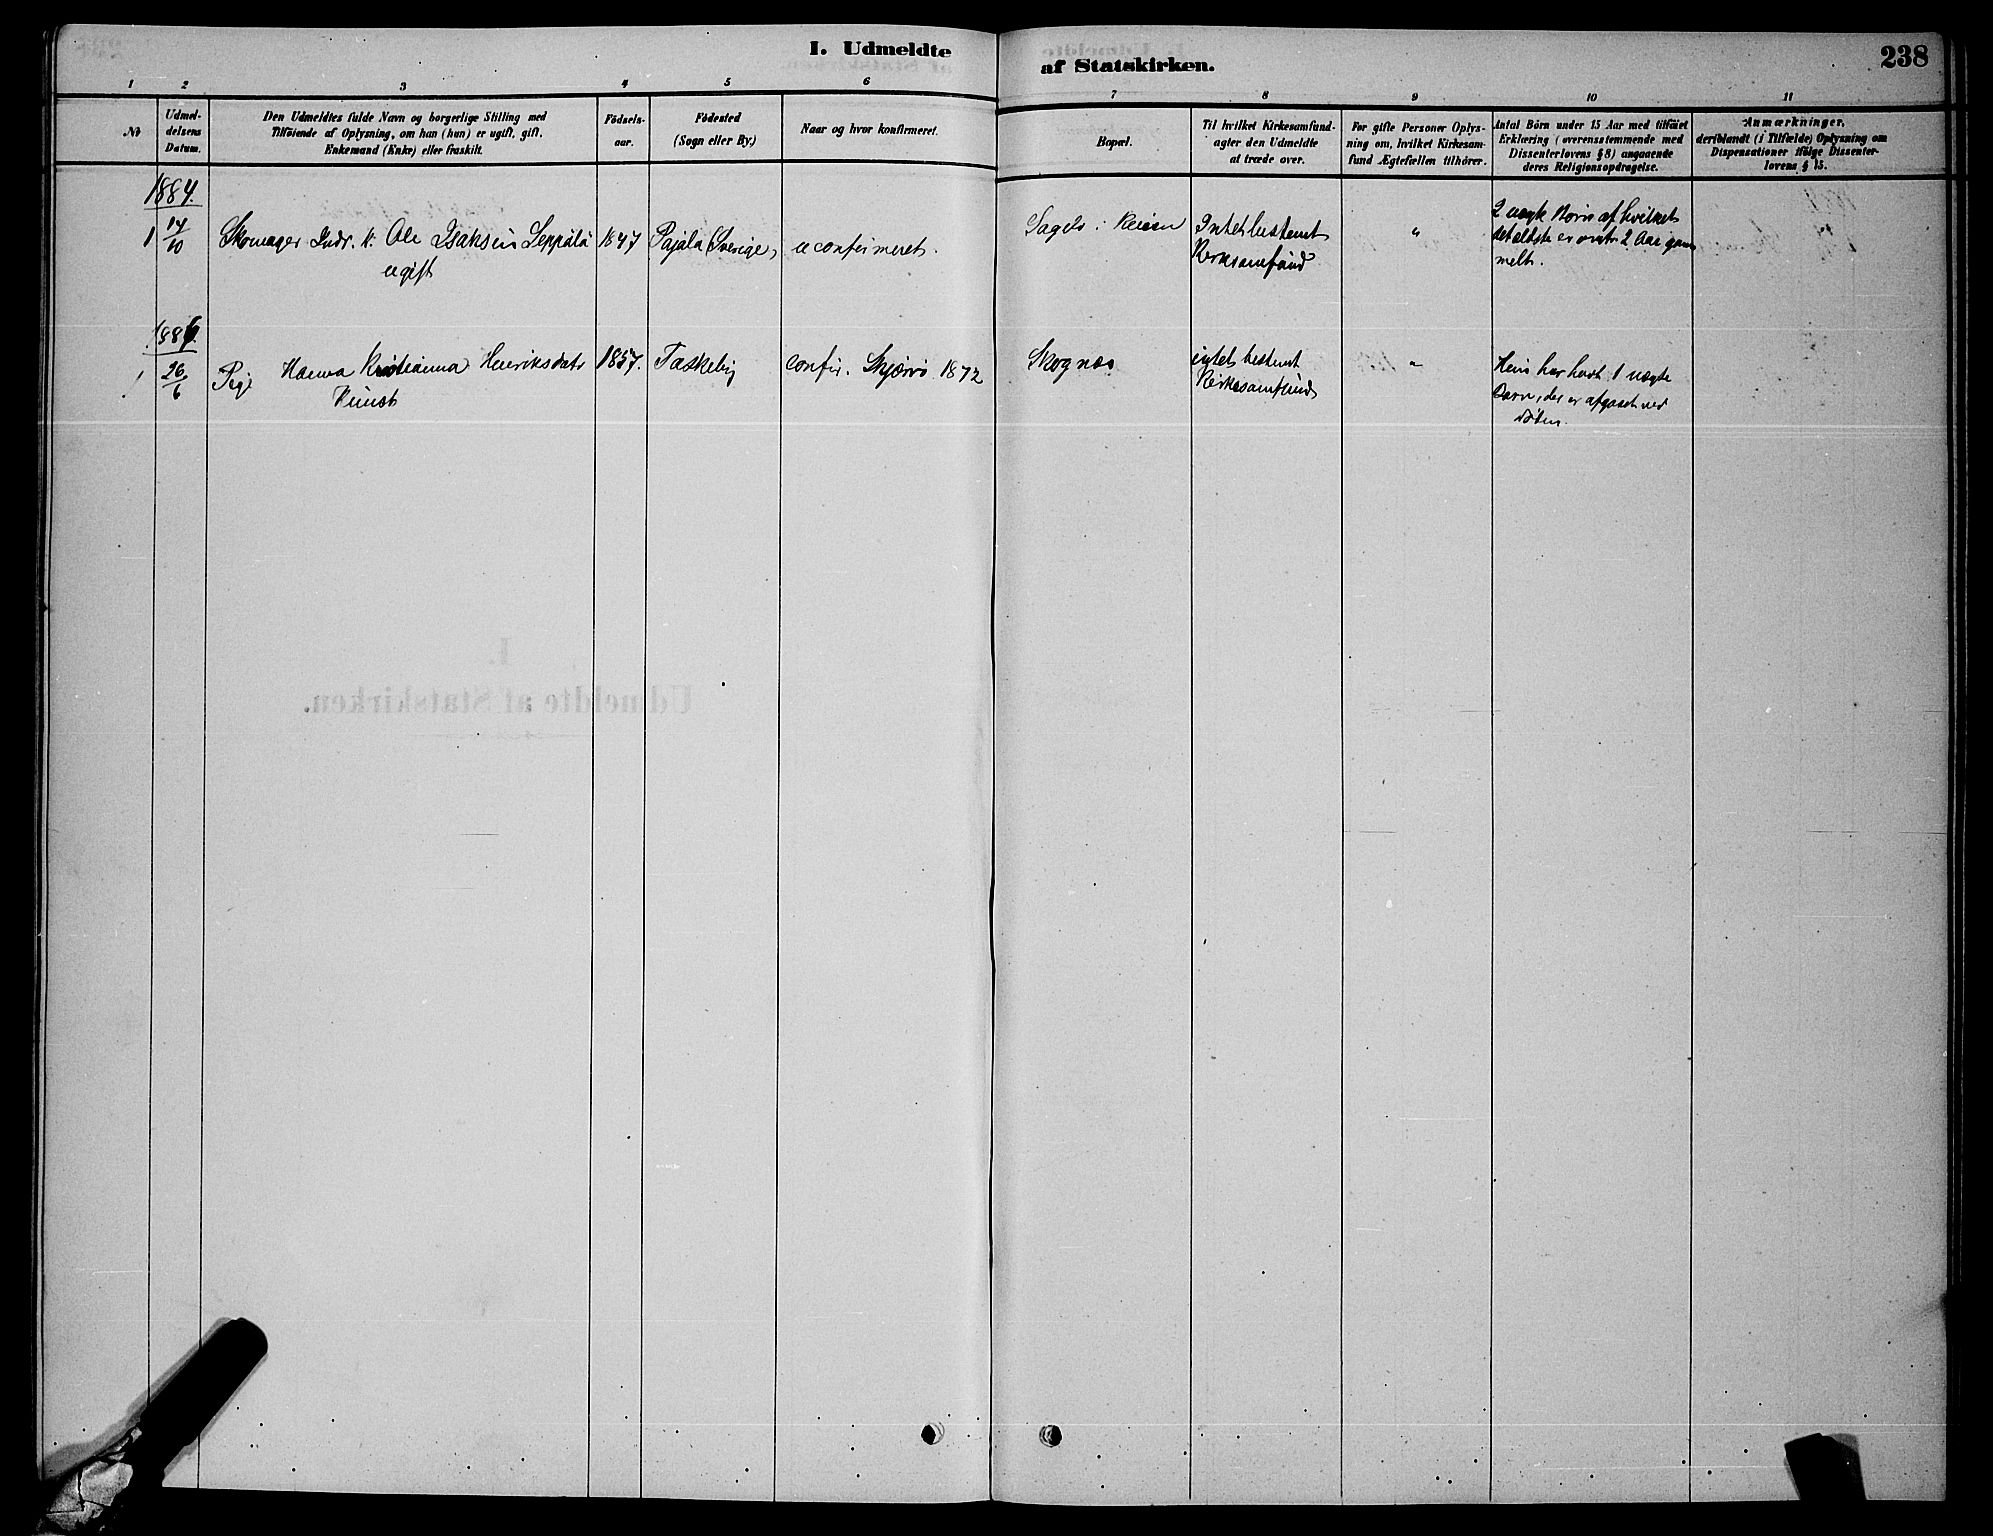 I. Udmeldte
af Statskirken.
238
1 2 3 4 5 6 7 8 9 10 11
No
Udmel-
delsens
Datum.
Den Udmeldtes fulde Navn og borgerlige Stilling med
Tilføiende af Oplysning, om han (hun) er ugift, gift,
Enkemand (Enke) eller fraskilt.
Fødsels-
aar.
Fødested
(Sogn eller By.)
Naar og hvor konfirmeret.
Bopæl.
Til hvilket Kirkesamfund-
agter den Udmeldte
at træde over.
For gifte Personer Oplys-
ning om, hvilket Kirkesam-
fund Ægtefællen tilhører.
Antal Börn under 15 Aar med tilføiet
Erklæring (overensstemmende med
Dissenterlovens § 8) angaaende
deres Religionsopdragelse.
Anmærkninger,
deriblandt (i Tilfælde) Oplysning om
Dispensationer ifølge Dissenter-
lovens § 15.
1884.
1 14/10 Skomager Indr. K. Ole Isaksen Leppälä
ugift
1847 Pajala (Sverige) uconfirmeret.
Sagels i Reisen
Intet bestemt
Kirkesamfund
"
2 uægte Børn af hvilket
det ældste er omtr. 2 Aar gam
melt.
1886.
1 26/6 Pige Hanna Kristianna Henriksdatr
Kunst
1857. Taskeby confir. Skjærvø 1872
Skognæs
intet bestemt
Kirkesamfund
"
Hun har havt 1 uægte
Barn, der er afgaaet ved
Døden.
I.
Udmeldte af Statskirken.